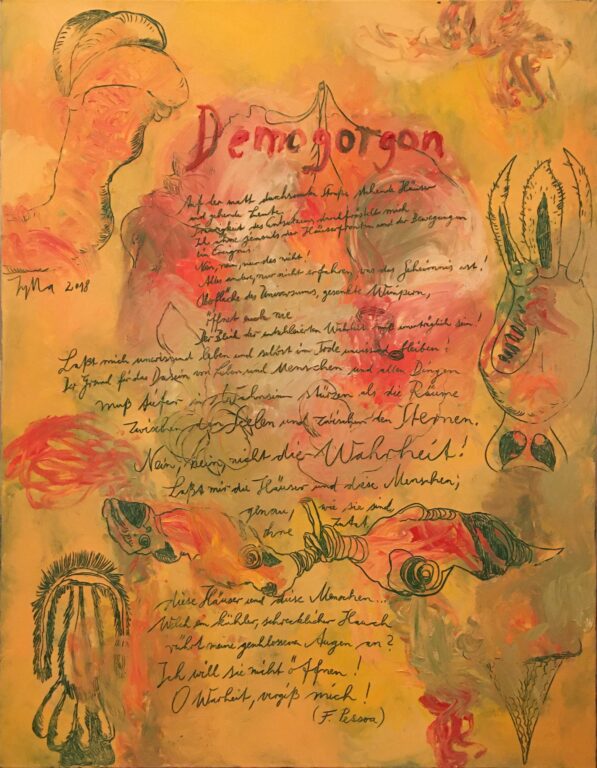 Demogorgon
Auf der matt sonnigen Straße stehende Häuser
und gehende Leute.
Traurigkeit des Entsetzens durchfröstelt mich
Ich ahne jenseits der Häuserfronten und der Bewegungen
ein Ereignis.
Nein, nein, nur das nicht!
Alles andere, nur nicht erfahren, was das Geheimnis ist!
Oberfläche des Universums, gesenkte Wimpern,
öffnet euch nie
Der Blick der entschleierten Wahrheit muß unerträglich sein!
Zylla 2018
Laßt mich unwissend leben und selbst im Tode unwissend bleiben!
Der Grund für das Dasein von Leben und Menschen und allen Dingen
muß tiefer in Wahnsinn stürzen als die Räume
zwischen den Seelen und zwischen den Sternen.
Nein, nein, nicht die Wahrheit!
Laßt mir die Häuser und diese Menschen;
genau, wie sie sind
ohne Zutat
diese Häuser und diese Menschen...
Welch ein kühler, schrecklicher Hauch
rührt meine geschlossenen Augen an?
Ich will sie nicht öffnen!
O Warheit, vergiß mich!
(F. Pessoa)